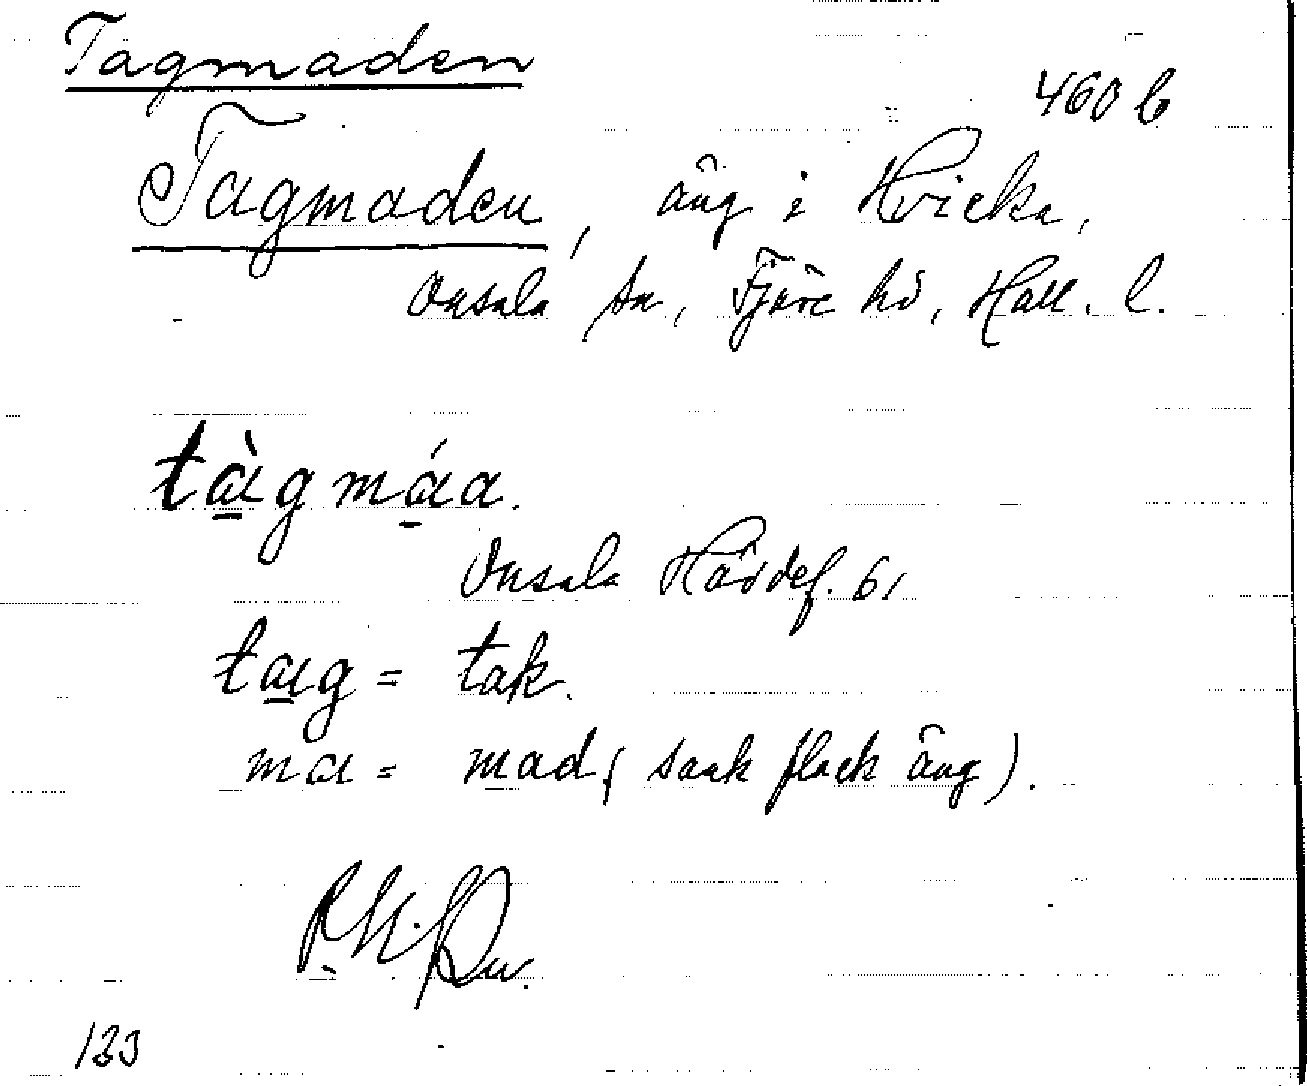 Tagmaden
460 b
Tagmaden, äng i Hvicke,
Onsala sn, Fjäre hd, Hall. l.
tàgmáa.
Onsala Härdef. 61
tag = tak.
ma = mad (sank flack äng).
133